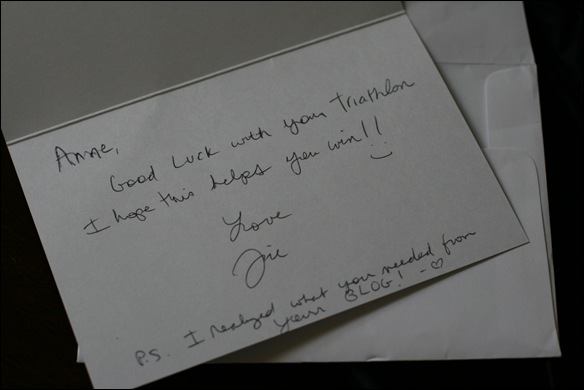 Anne,
Good Luck with your Triathlon
I hope this helps you win!!
Love
Jie
P.S. I realized what you needed from
your BLOG! -♡